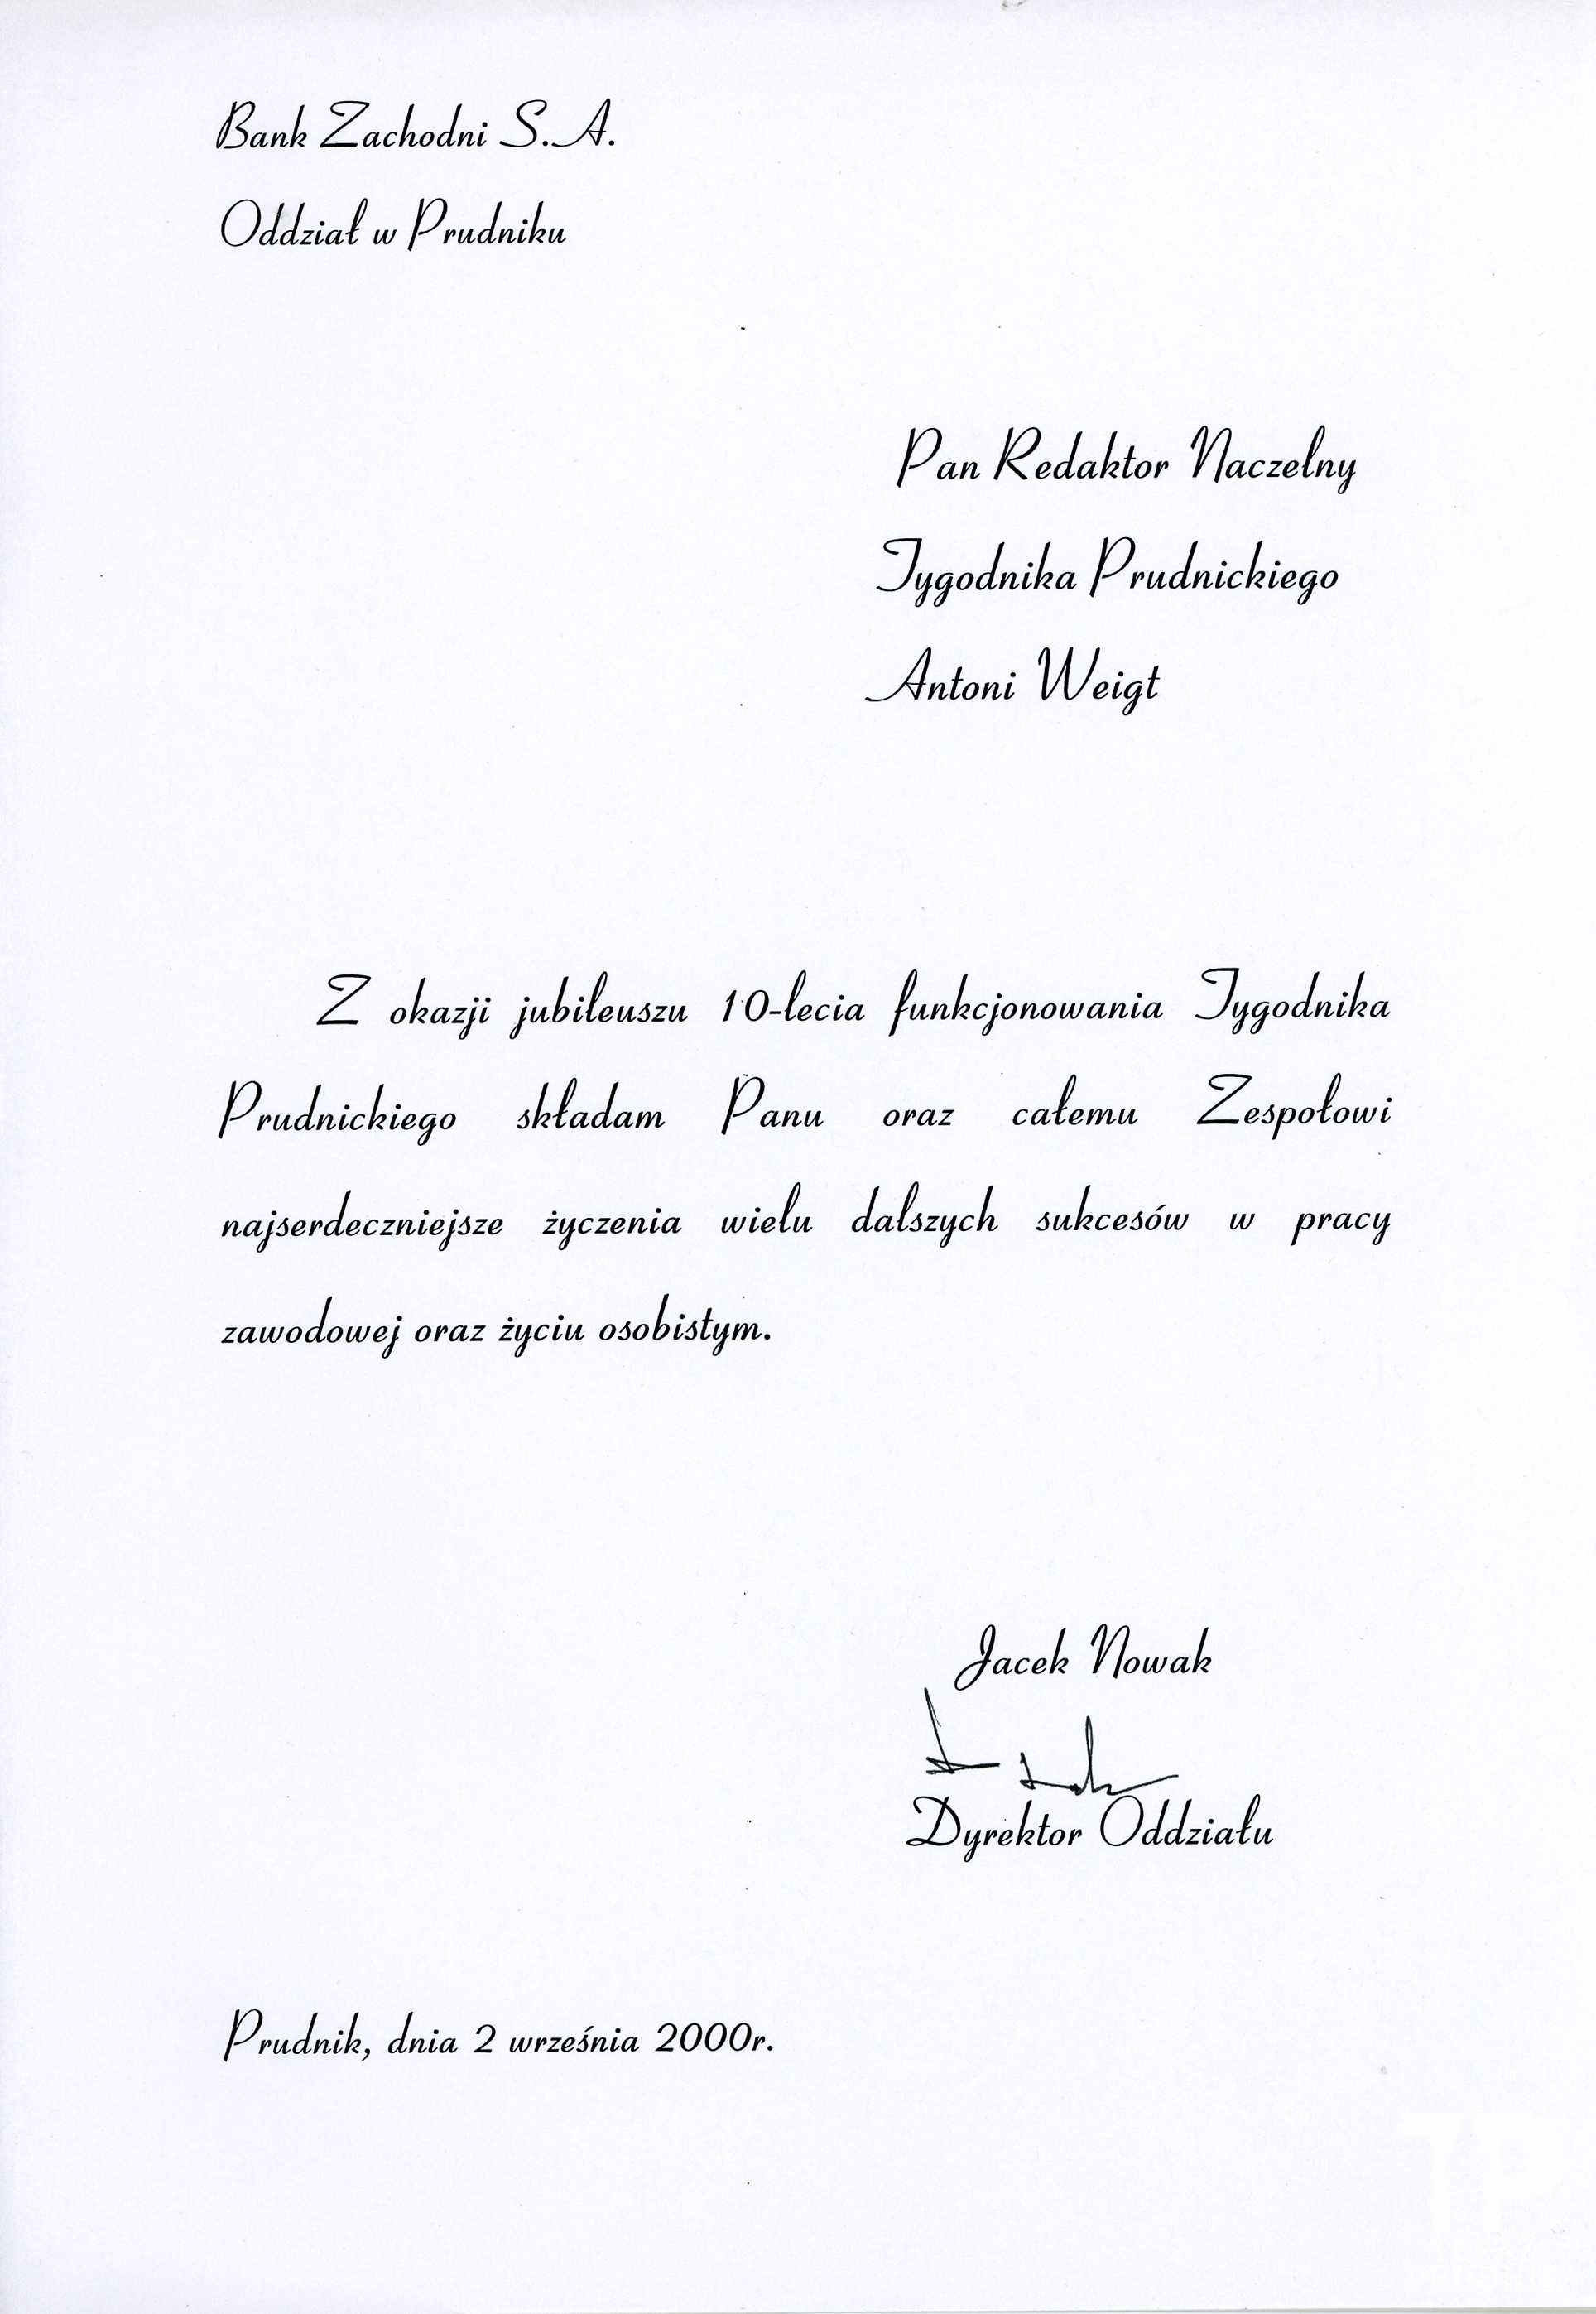 Bank Zachodni S.A.
Oddział w Prudniku
Pan Redaktor Naczelny
Tygodnika Prudnickiego
Antoni Weigt
Z okazji jubileuszu 10-lecia funkcjonowania Tygodnika
Prudnickiego składam Panu oraz całemu Zespołowi
najserdeczniejsze życzenia wielu dalszych sukcesów w pracy
zawodowej oraz życiu osobistym.
Jacek Nowak
Dyrektor Oddziału
Prudnik, dnia 2 września 2000r.